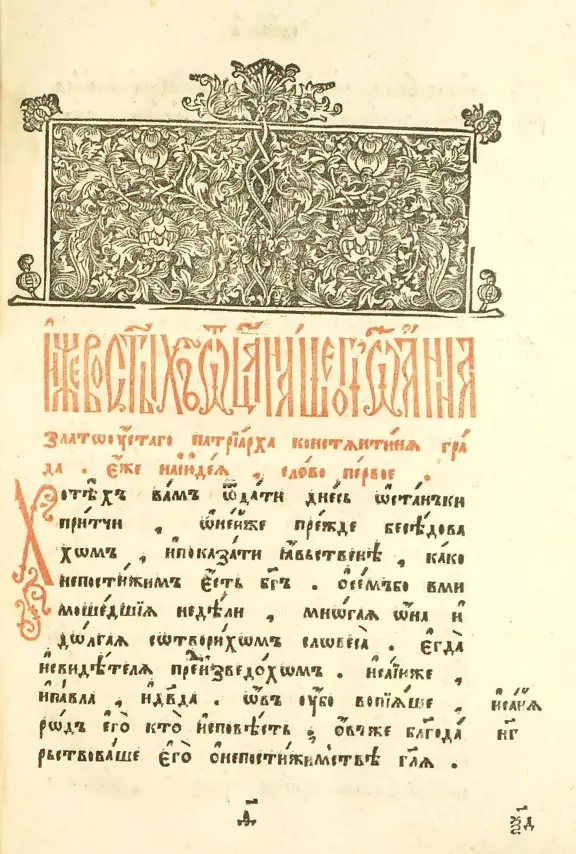 и҆́же во ст҃ы́хъ ѻ҆ц҃а̀ на́шегѡ і҆ѡа́нна
златоꙋ́стаго патрїа́рха константи́ня гра́
да . є҆́же на а҆индеѧ , сло́во пе́рвое .
Хотѣ́хъ ва́мъ ѿда́ти дне́сь ѡ҆ста́нъки
при́тчи , ѡ҆ не́йже пре́жде бесѣ́дова
хомъ , и҆ показа́ти ꙗ҆́вьственнѣ , ка́ко
непостижи́мъ є҆́сть бг҃ъ . ѡ҆ се́мъ бо в ми
моше́дшїѧ недѣ́ли , мнѡ́гаѧ ѡ҆́на и҆
до́лгаѧ сотвори́хомъ словеса̀ . є҆гда̀
и҆ свидѣ́телѧ преизведо́хомъ . и҆са́їю же ,
и҆ па́вла , и҆ дв҃да . ѻ҆́въ ᲂу҆́бо вопїѧ́ше ,
ро́дъ є҆го̀ кто̀ и҆сповѣ́сть , ѻ҆́въ же благода
рьствова́ше є҆го̀ ѡ҆ непостижи́мствѣ гл҃ѧ .
и҆са́їѧ
нг҃
а҃